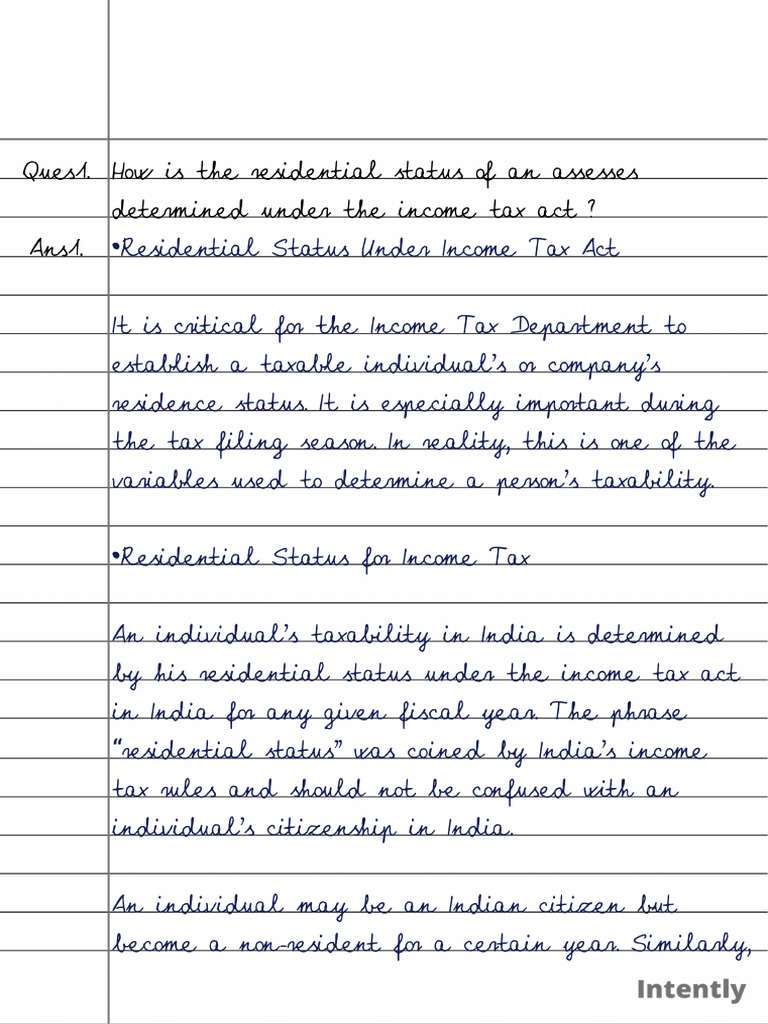 Ques1. How is the residential status of an assesses
determined under the income tax act ?
Ans1. •Residential Status Under Income Tax Act
It is critical for the Income Tax Department to
establish a taxable individual's or company's
residence status. It is especially important during
the tax filing season. In reality, this is one of the
variables used to determine a person's taxability.
•Residential Status for Income Tax
An individual's taxability in India is determined
by his residential status under the income tax act
in India for any given fiscal year. The phrase
"residential status" was coined by India's income
tax rules and should not be confused with an
individual's citizenship in India.
An individual may be an Indian citizen but
become a non-resident for a certain year. Similarly,
Intently